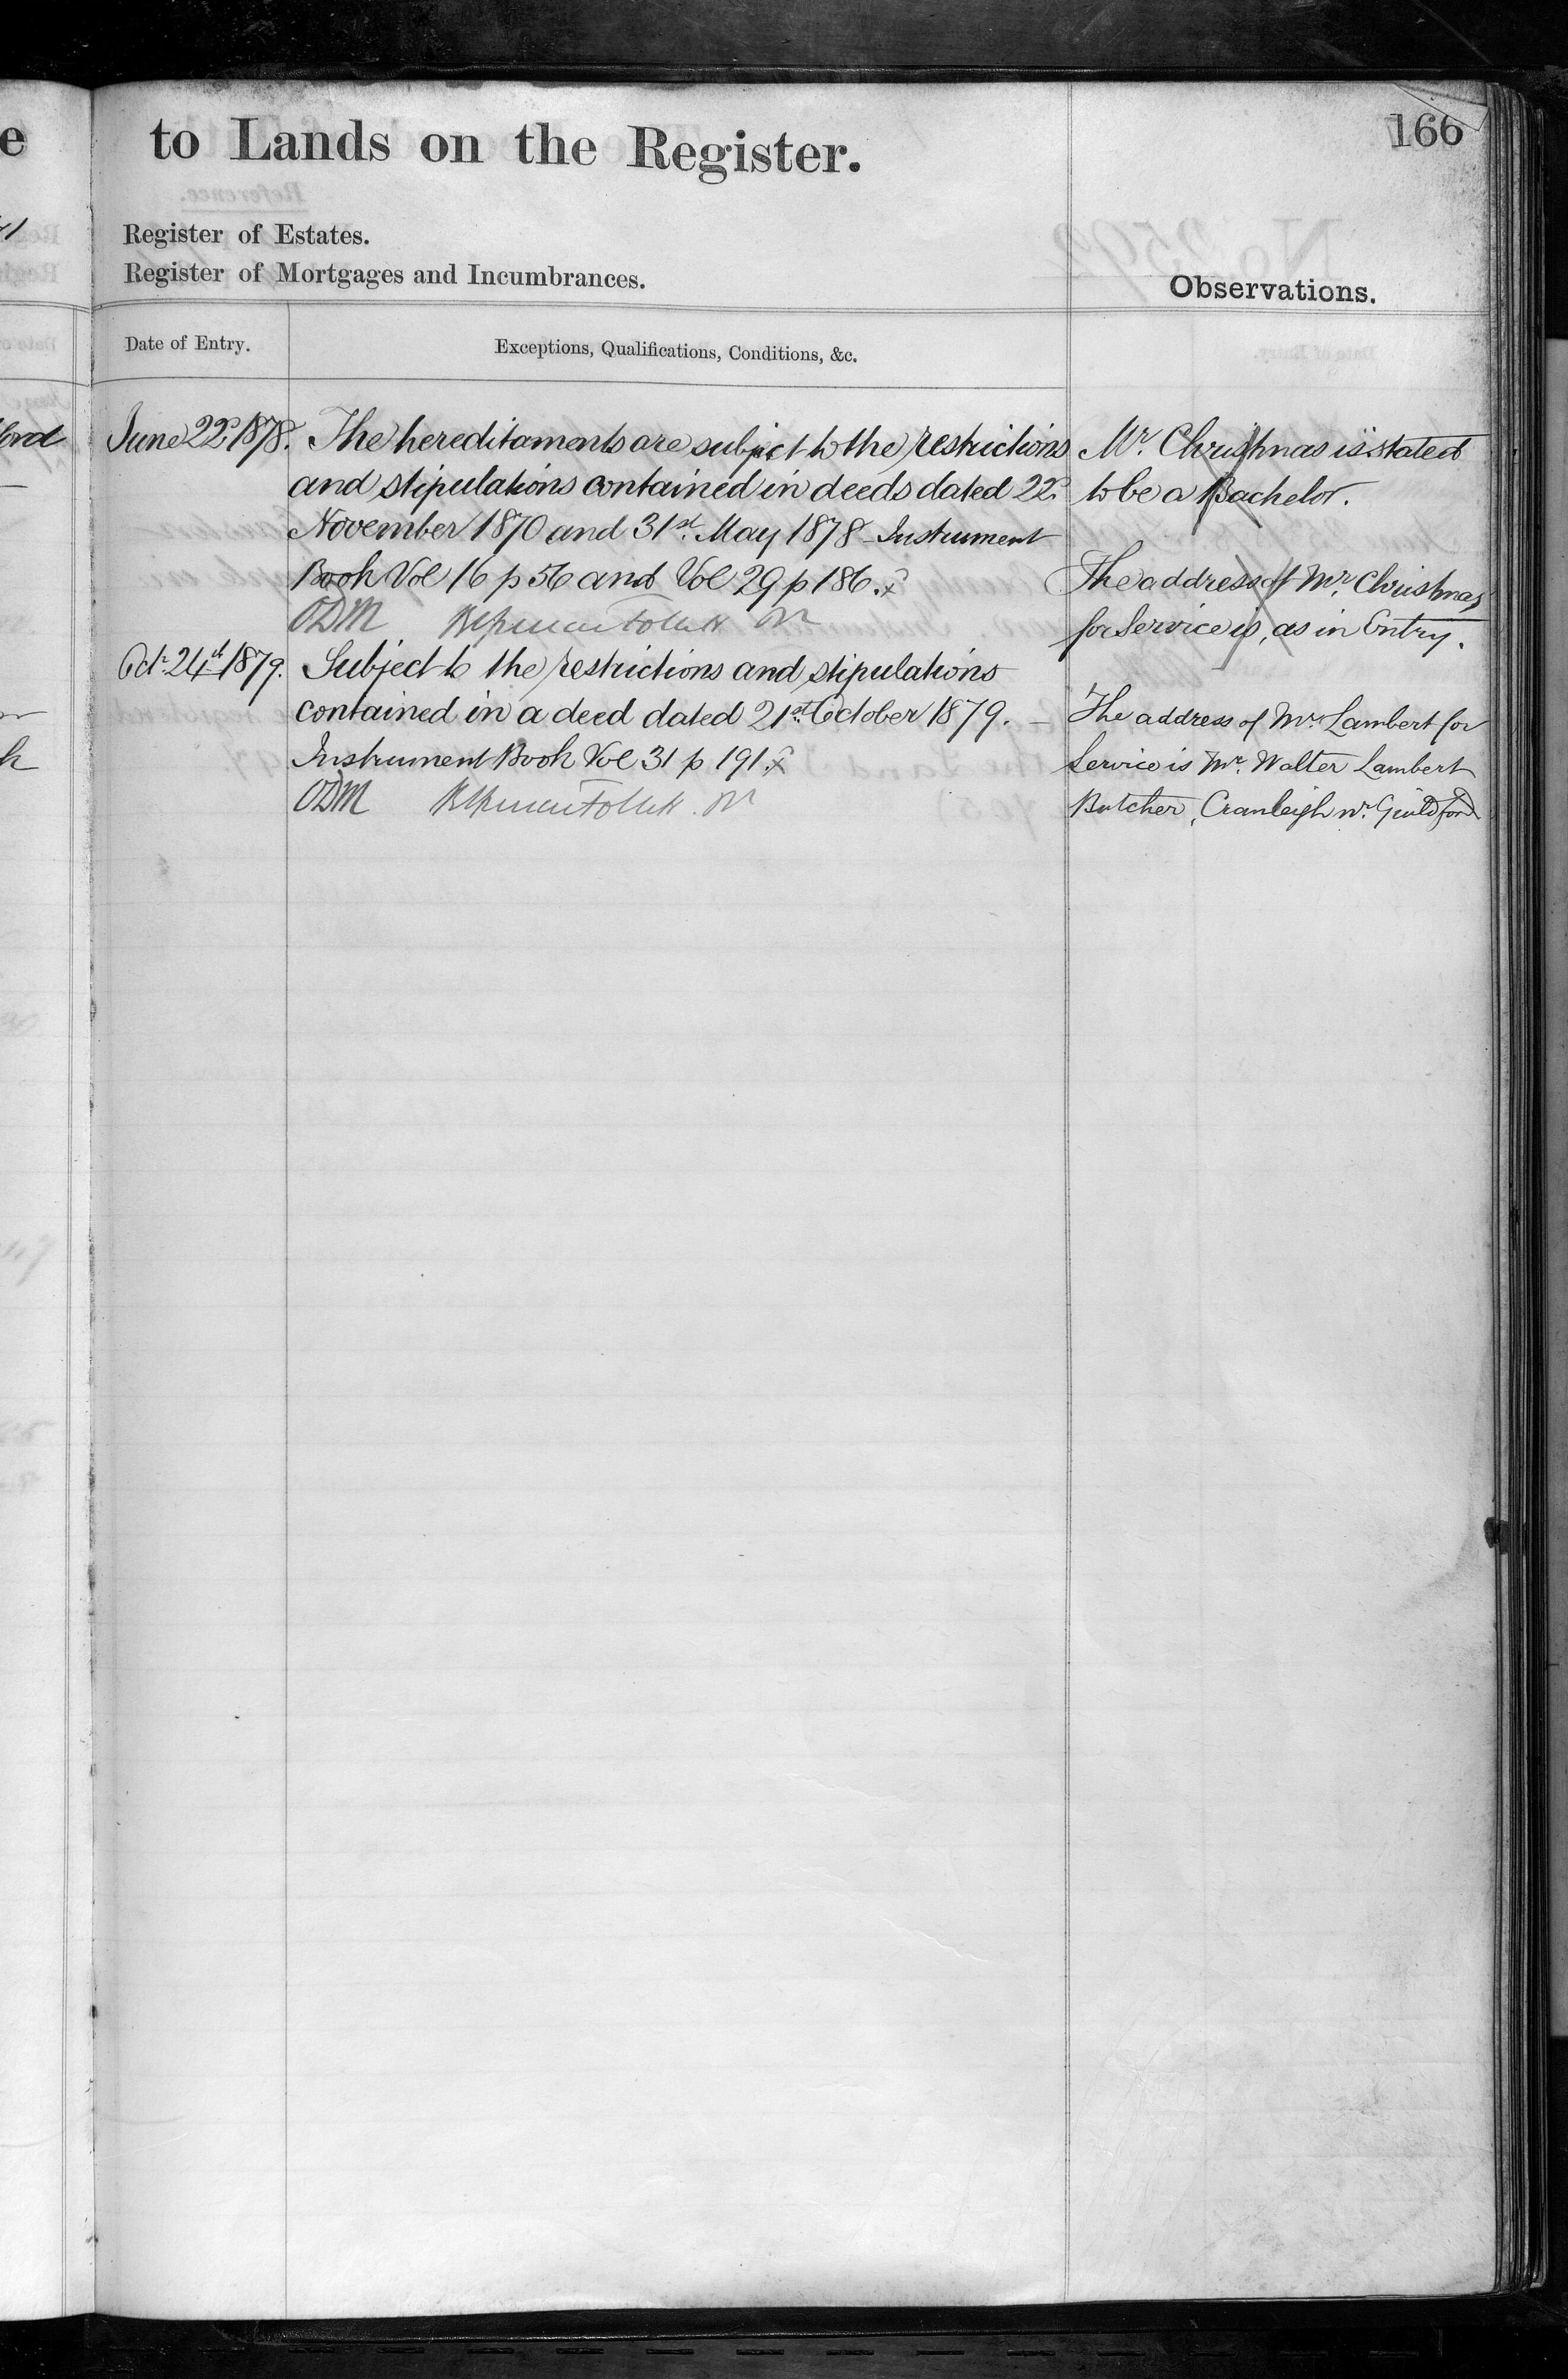 to Lands on the Register.
166
Register of Estates.
Register of Mortgages and Incumbrances.
Observations.
Date of Entry.
Exceptions, Qualifications, Conditions, &c.
June 22d 1878.
The hereditaments are subject to the restrictions
and stipulations contained in deeds dated 22d
November 1870 and 31st May 1878 - Instrument
Book Vol 16 p 56 and Vol 29 p 186.x
ODM
Octr 24th 1879.
Subject to the restrictions and stipulations
contained in a deed dated 21st October 1879. -
Instrument Book Vol 31 p 191.x
ODM
Mr. Christmas is stated
to be a Bachelor.
The address of Mr. Christmas
for Service is, as in Entry.
The address of Mr. Lambert for
Service is Mr. Walter Lambert
Butcher, Cranleigh nr. Guildford